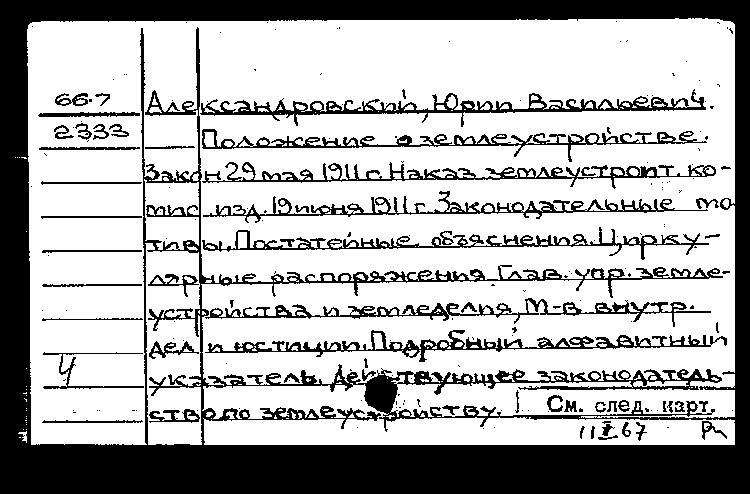 66.7
2333
Александровский, Юрий Васильевич.
Положение о землеустройстве.
Закон 29 мая 1911 г. Наказ землеустроит. ко-
мис. изд. 19 июня 1911 г. Законодательные мо
тивы. Постатейные объяснения. Цирку-
лярные распоряжения Глав. упр. земле-
устройства и земледелия, М-в внутр.
дел и юстиции. Подробный алфавитный
Ч
указатель. Действующее законодатель-
ство по землеустройству.
См. след. карт.
11 I 67